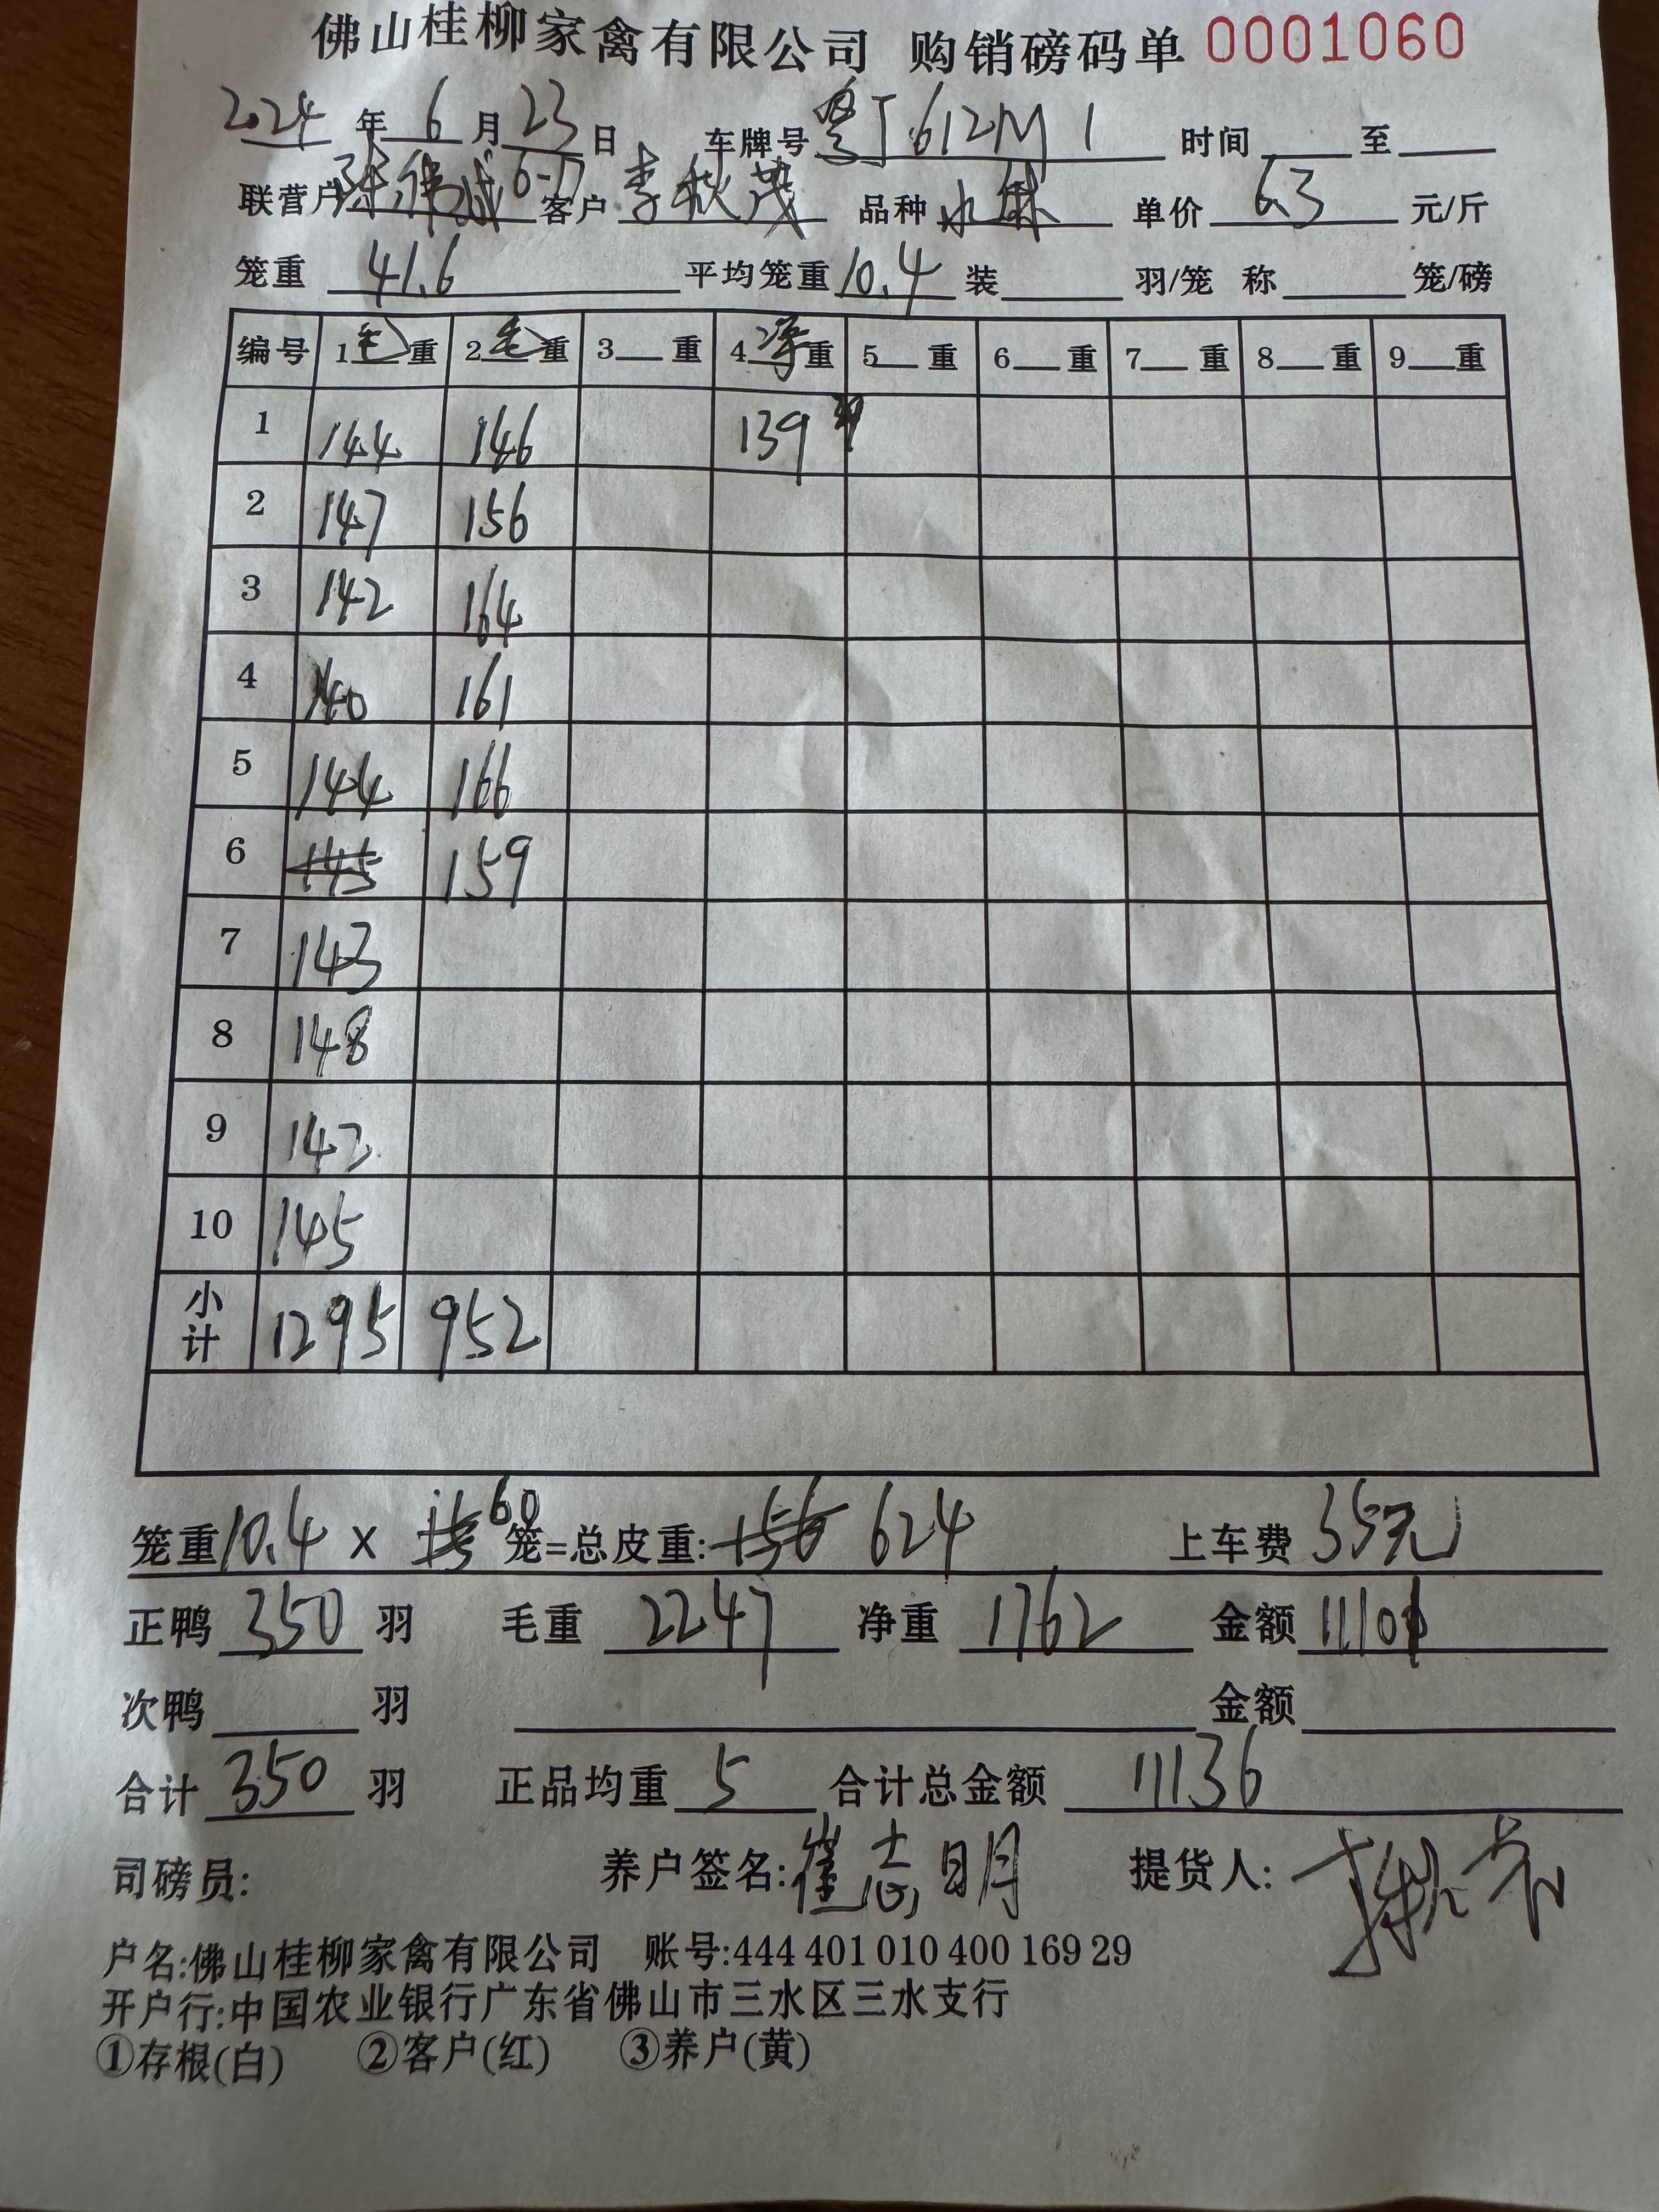 佛山桂柳家禽有限公司 购销磅码单 0001060
2024年6月23日 车牌号 粤J612M1 时间 至
联营户 陈伟斌6-17 客户 李秋茂 品种 水 单价 6.3 元/斤
笼重 41.6 平均笼重 10.4 装 羽/笼 称 笼/磅
编号 1毛重 2毛重 3 重 4净重 5 重 6 重 7 重 8 重 9 重
1 144 146 139
2 147 156
3 142 164
4 140 161
5 144 166
6 145 159
7 143
8 148
9 142
10 145
小计 1295 952
笼重10.4 X 15 60 笼=总皮重: 156 624 上车费 35元
正鸭 350 羽 毛重 2247 净重 1762 金额 11101
次鸭 羽 金额
合计 350 羽 正品均重 5 合计总金额 11136
司磅员: 养户签名: 崔志明 提货人:
户名:佛山桂柳家禽有限公司 账号:444 401 010 400 169 29
开户行:中国农业银行广东省佛山市三水区三水支行
①存根(白) ②客户(红) ③养户(黄)